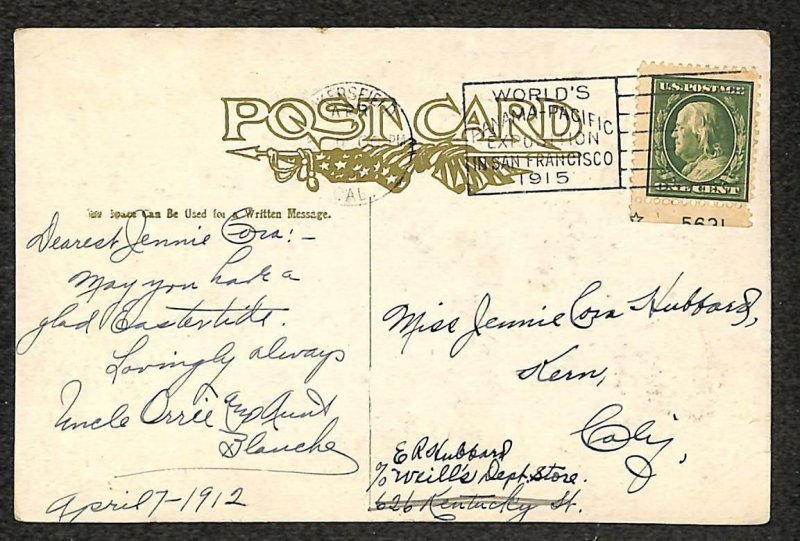 POST CARD
BAKERSFIELD
CAL.
WORLD'S
PANAMA-PACIFIC
EXPOSITION
IN SAN FRANCISCO
1915
U.S. POSTAGE
ONE CENT
5621
Space Can Be Used for a Written Message.
Dearest Jennie Cora:-
May you have a
glad Eastertide.
Lovingly always
Uncle Orrie and Aunt
Blanche
April 7-1912
Miss Jennie Cora Hubbard,
Kern,
Calif,
E R Hubbard
c/o Weill's Dept. Store.
626 Kentucky St.